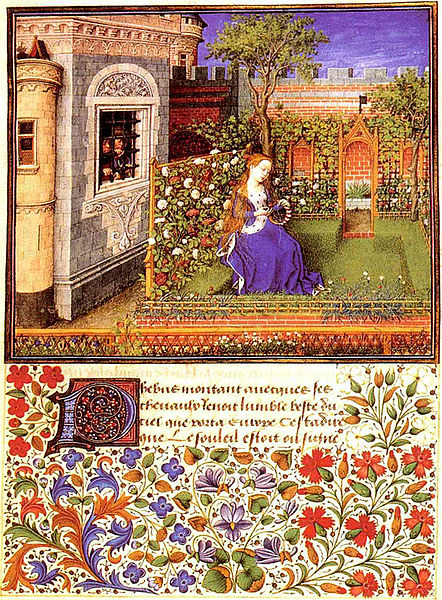 Phebus montant avecques ses
chevaulx tenoit lumble beste du
ciel que porta europe Cestadire
que Le souleil estoit ou signe